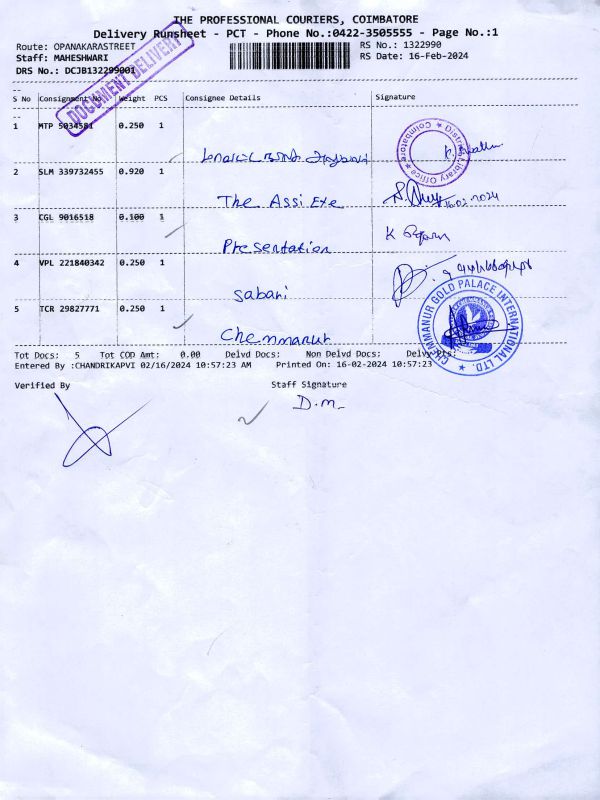 THE PROFESSIONAL COURIERS, COIMBATORE
Delivery Runsheet - PCT - Phone No.:0422-3505555 - Page No.:1
Route: OPANAKARASTREET
RS No.: 1322990
Staff: MAHESHWARI
RS Date: 16-Feb-2024
DRS No.: DCJB132299001
DOCUMENT DELIVERY
S No Consignment No Weight PCS Consignee Details Signature
1 MTP 5034581 0.250 1
District Library Office ★ Coimbatore ★
2 SLM 339732455 0.920 1
The Assi Exe
16.02.2024
3 CGL 9016518 0.100 1
Presentation
K
4 VPL 221840342 0.250 1
Sabari
5 TCR 29827771 0.250 1
Chemmanur
CHEMMANUR GOLD PALACE INTERNATIONAL LTD. ★
Tot Docs: 5 Tot COD Amt: 0.00 Delvd Docs: Non Delvd Docs: Delvy Pts:
Entered By :CHANDRIKAPVI 02/16/2024 10:57:23 AM Printed On: 16-02-2024 10:57:23
Verified By Staff Signature
D.M.